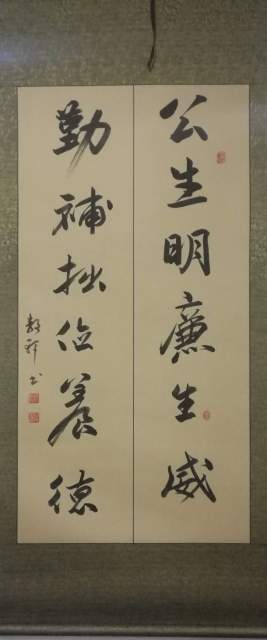 公生明廉生威
勤補拙俭養德